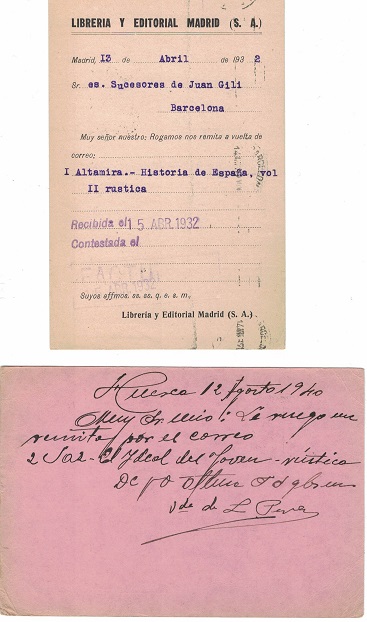 LIBRERIA Y EDITORIAL MADRID (S. A.)
Madrid, 13 de Abril de 1932
Sr. es. Sucesores de Juan Gili
Barcelona
Muy señor nuestro: Rogamos nos remita a vuelta de
correo;
I Altamira.- Historia de España. vol
II rustica
Recibida el 15 ABR. 1932
Contestada el
Suyos affmos. ss. ss. q. e. s. m.
Librería y Editorial Madrid (S. A.)
Huesca 12 Agosto 1940
Muy Sr. mio: Le ruego me
remita por el correo
2 Saz - El Ideal del Joven - rústica
De
Vda de L.